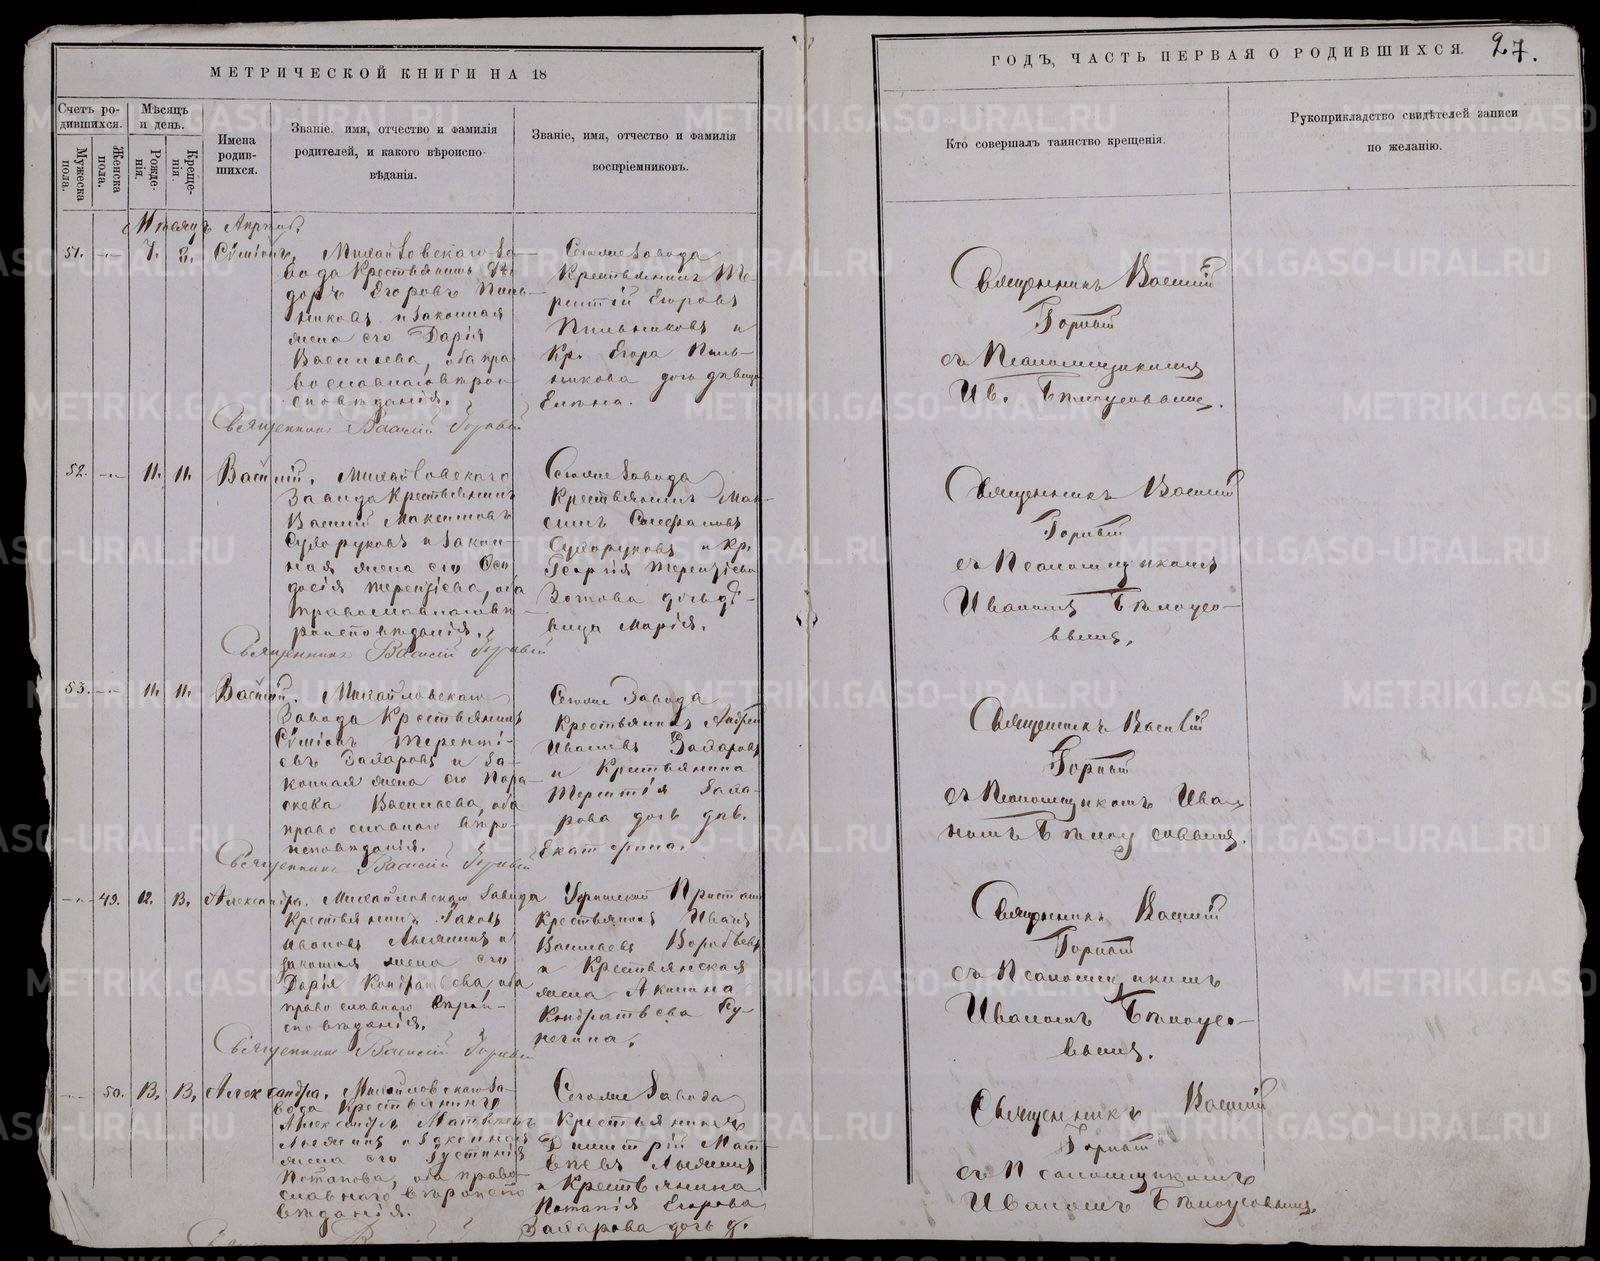 МЕТРИЧЕСКОЙ КНИГИ НА 18
ГОДЪ, ЧАСТЬ ПЕРВАЯ О РОДИВШИХСЯ.
27.
Счетъ ро-
дившихся.
Мужеска
пола.
Женска
пола.
Мѣсяцъ
и день.
Рожде-
нія.
Креще-
нія.
Имена
родив-
шихся.
Званіе, имя, отчество и фамилія
родителей, и какого вѣроиспо-
вѣданія.
Званіе, имя, отчество и фамилія
воспріемниковъ.
Кто совершалъ таинство крещенія.
Рукоприкладство свидѣтелей записи
по желанію.
Мѣсяцъ Апрѣль.
51.
Сѵмеонъ.
Михайловскаго За-
вода Крестьянинъ Ѳе-
доръ Егоровъ Пиль-
никовъ и законная
жена его Дарія
Васильева, оба пра-
вославнаго вѣрои-
сповѣданія.
Тогоже Завода
Крестьянинъ Те-
рентій Егоровъ
Пильниковъ и
Кр. Егора Пиль-
никова дочь дѣвица
Елена.
Священникъ Василій Горный
съ Псаломщикомъ
Ив. Бѣлоусовымъ.
Священникъ Василій Горный
52.
11. 11.
Василій.
Михайловскаго
Завода Крестьянинъ
Василій Максимовъ
Сухоруковъ и закон-
ная жена его Ѳео
досія Терентіева, оба
православнаго вѣ-
роисповѣданія.
Тогоже Завода
Крестьянинъ Мак-
симъ Стефановъ
Сухоруковъ и Кр.
Георгія Терентіева
Зотова дочь дѣ-
вица Марія.
Священникъ Василій
Горный
съ Псаломщикомъ
Иваномъ Бѣлоусо-
вымъ.
Священникъ Василій Горный
53.
11. 11.
Василій.
Михайловскаго
Завода Крестьянинъ
Сѵмеонъ Теренті-
евъ Захаровъ и за-
конная жена его Пара-
скева Васильева, оба
православнаго вѣро-
исповѣданія.
Тогоже Завода
Крестьянинъ Андрей
Ивановъ Захаровъ
и Крестьянина
Терентія Заха-
рова дочь дѣв.
Екатерина.
Священникъ Василій
Горный
съ Псаломщикомъ Ива-
номъ Бѣлоусовымъ.
Священникъ Василій Горный
49.
12. 13.
Александра.
Михайловскаго Завода
Крестьянинъ Яковъ
Ивановъ
законная жена его
Дарія Кондратьева, оба
православнаго вѣрои-
сповѣданія.
Уфимской Пристани
Крестьянинъ Иванъ
Васильевъ Воробьевъ
и Крестьянская
жена Акилина
Кондратьева
Священникъ Василій
Горный
съ Псаломщикомъ
Иваномъ Бѣлоусо-
вымъ.
Священникъ Василій Горный
50.
13. 13.
Александра.
Михайловскаго За-
вода Крестьянинъ
Александръ Матвѣевъ
и законная
жена его Іустинія
Потапова, оба право-
славнаго вѣроиспо
вѣданія.
Тогоже Завода
Крестьянинъ
Димитрій Мат-
вѣевъ
и Крестьянина
Потапія Егорова
Захарова дочь д.
Священникъ Василій
Горный
съ Псаломщикомъ
Иваномъ Бѣлоусовымъ.
METRIKI.GASO-URAL.RU